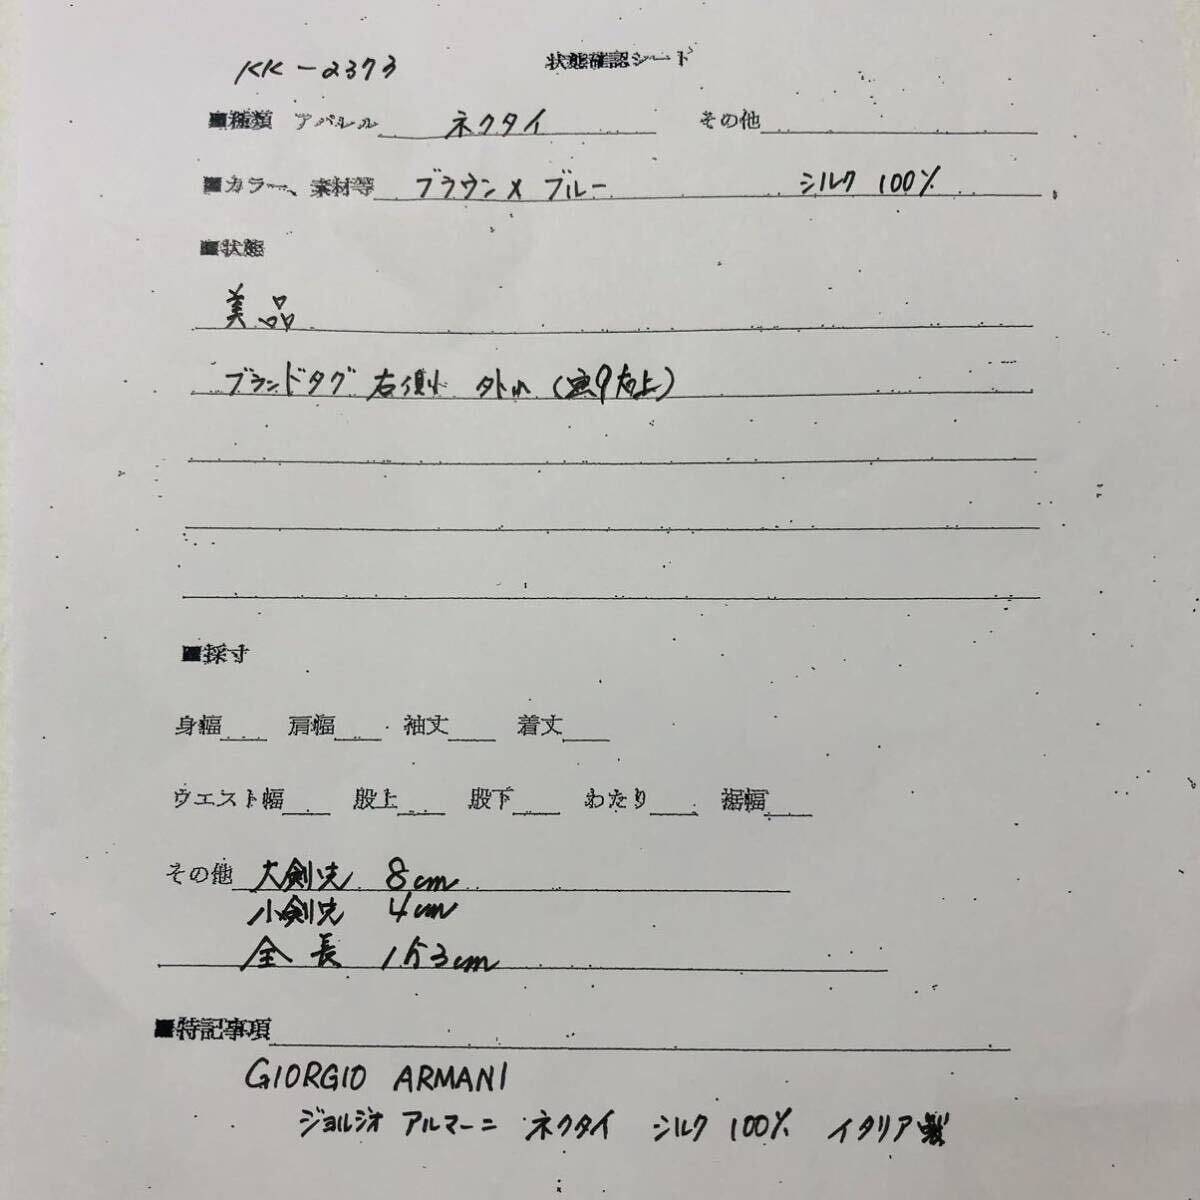 KK-2373 状態確認シート
■種類 アパレル ネクタイ その他
■カラー、素材等 ブラウン×ブルー シルク 100%
■状態
美品
ブランドタグ 右側 外れ (画9右上)
■採寸
身幅 肩幅 袖丈 着丈
ウエスト幅 股上 股下 わたり 裾幅
その他 大剣先 8cm
小剣先 4cm
全長 153cm
■特記事項
GIORGIO ARMANI
ジョルジオ アルマーニ ネクタイ シルク 100% イタリア製